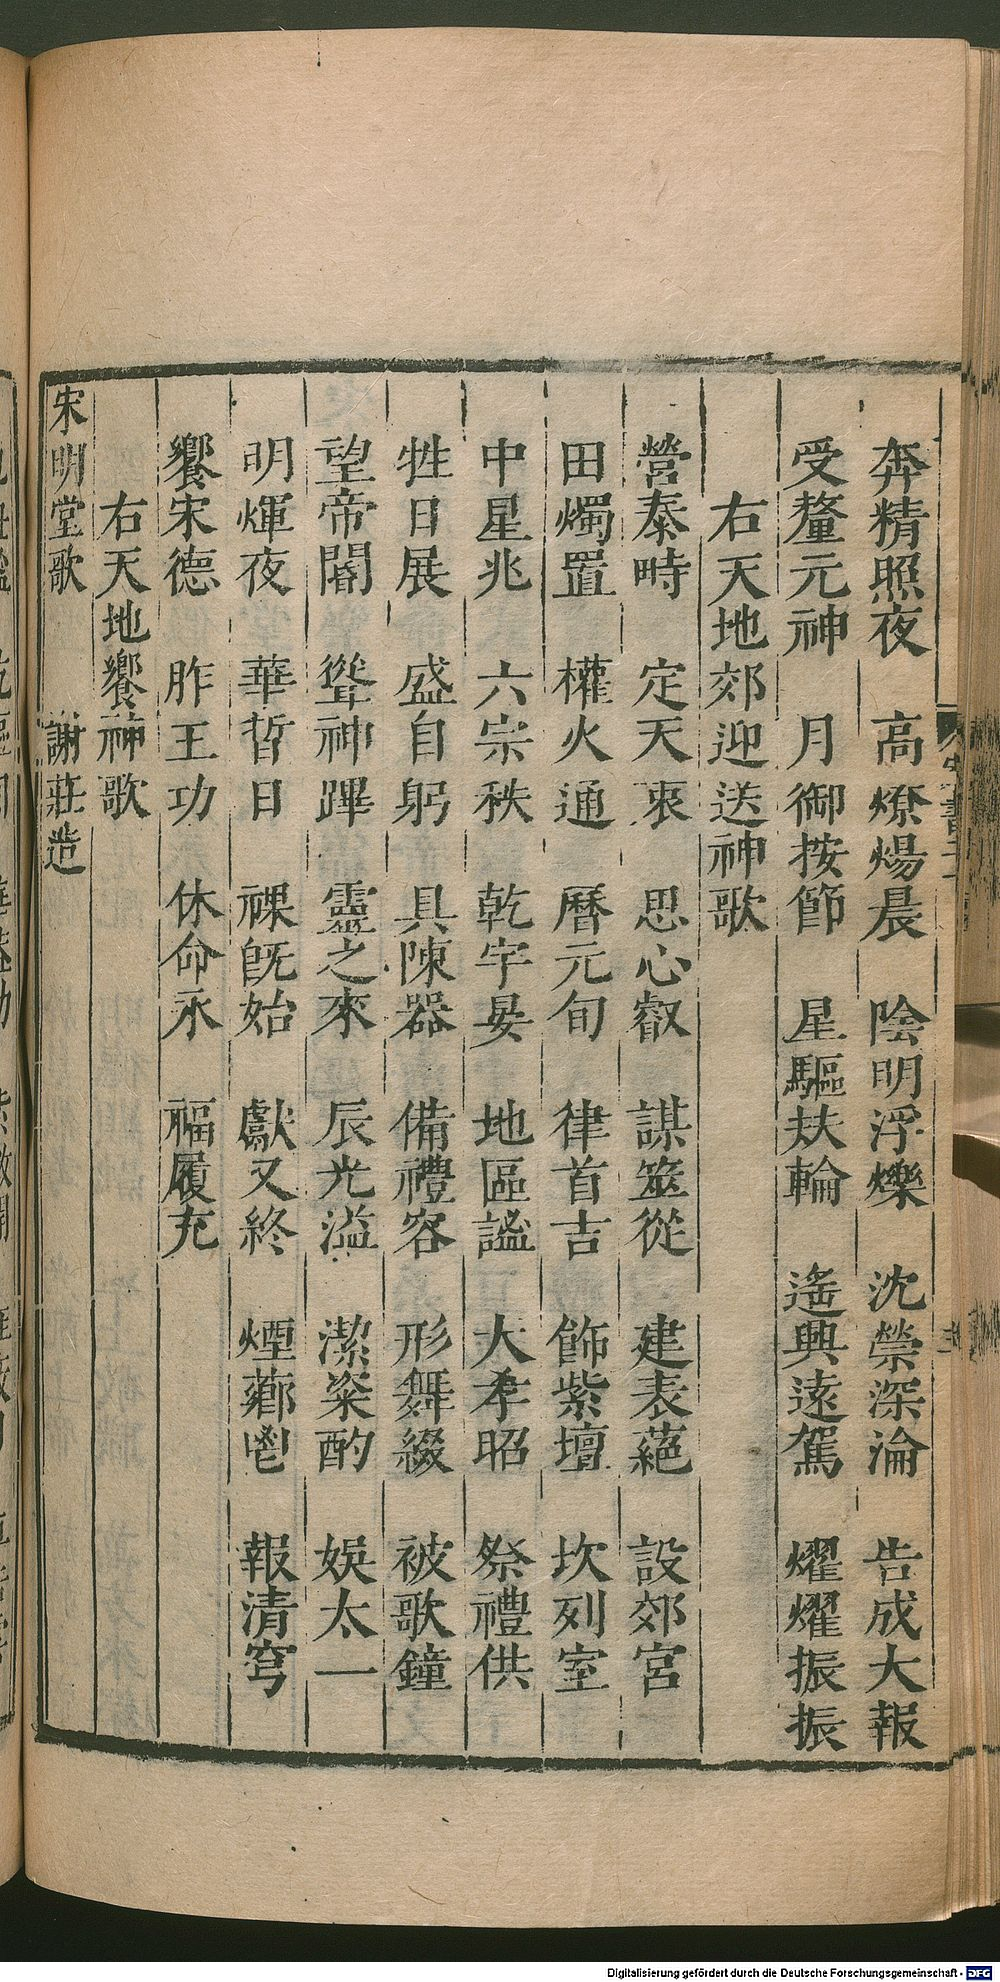 奔精照夜　高燎煬晨　陰明浮爍　沈禜深淪　告成大報
受釐元神　月御按節　星驅扶輪　遙興遠駕　燿燿振振
右天地郊迎送神歌
營泰畤　定天衷　思心叡　謀筮從　建表蕝　設郊宮
田燭置　權火通　曆元旬　律首吉　飾紫壇　坎列室
中星兆　六宗秩　乾宇晏　地區謐　大孝昭　祭禮供
牲日展　盛自躬　具陳器　備禮容　形舞綴　被歌鐘
望帝閽　聳神蹕　靈之來　辰光溢　潔粢酌　娛太一
明煇夜　華晢日　祼旣始　獻又終　煙薌鬯　報清穹
饗宋德　胙王功　休命永　福履充
右天地饗神歌
宋明堂歌　謝莊造
Digitalisierung gefördert durch die Deutsche Forschungsgemeinschaft - DFG